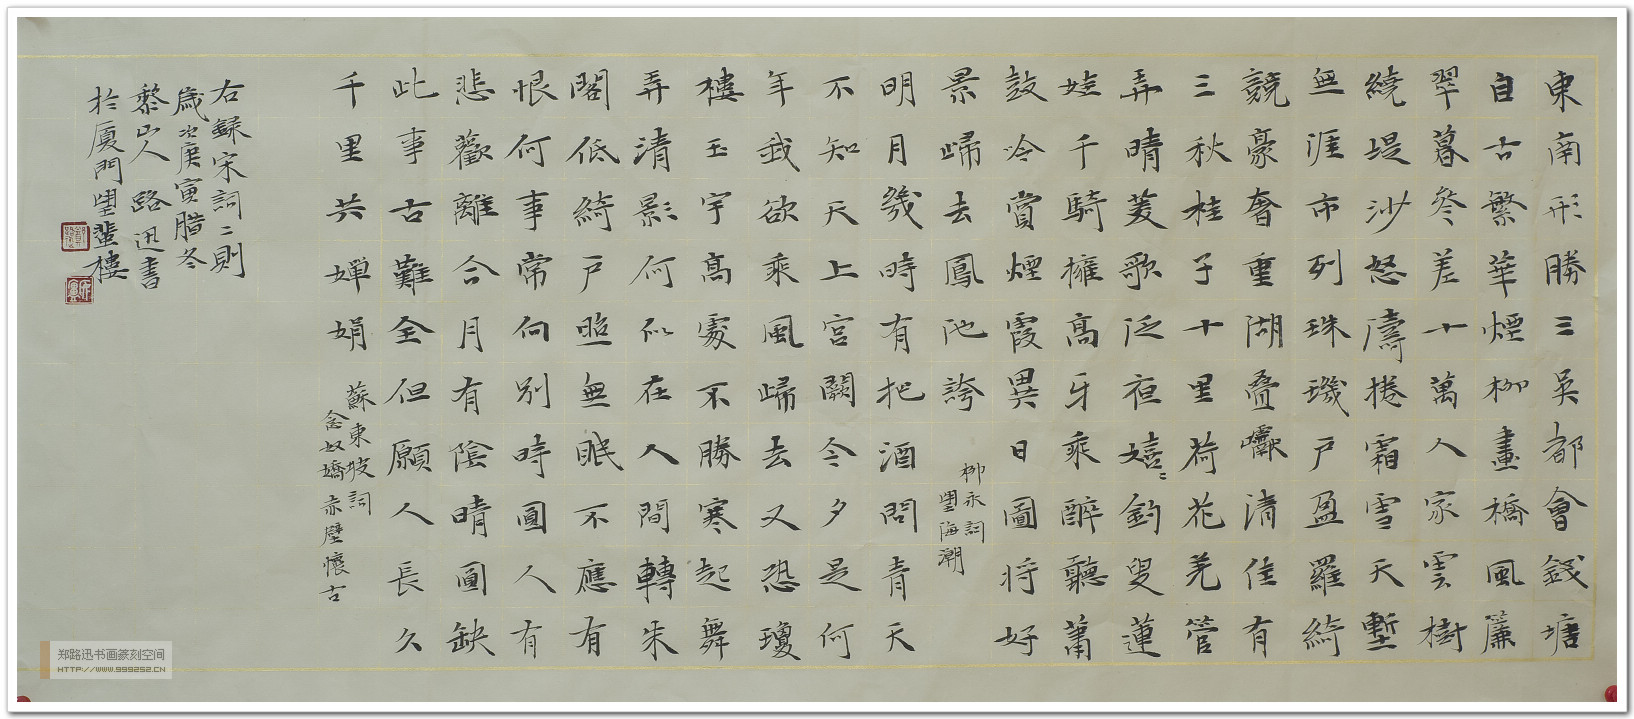 東南形勝三吳都會錢塘
自古繁華煙柳畫橋風簾
翠暮參差十萬人家雲樹
繞堤沙怒濤捲霜雪天塹
無涯市列珠璣戶盈羅綺
競豪奢重湖疊巘清佳有
三秋桂子十里荷花羌管
弄晴菱歌泛夜嬉〻釣叟蓮
娃千騎擁高牙乘醉聽蕭
鼓吟賞煙霞異日圖將好
景歸去鳳池誇
柳永詞
望海潮
明月幾時有把酒問青天
不知天上宮闕今夕是何
年我欲乘風歸去又恐瓊
樓玉宇高處不勝寒起舞
弄清影何似在人間轉朱
閣低綺戶照無眠不應有
恨何事常向別時圓人有
悲歡離合月有陰晴圓缺
此事古難全但願人長久
千里共嬋娟
蘇東坡詞
念奴嬌赤壁懷古
右錄宋詞二則
歲次庚寅腊冬
黎山人路迅書
於厦門望蜚樓
郑路迅书画篆刻空间
HTTP://WWW.999252.CN